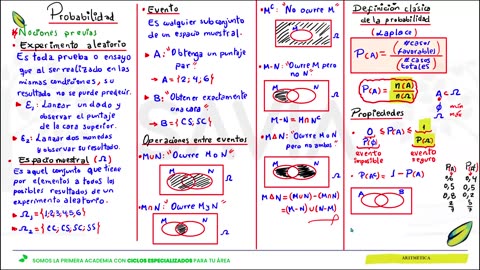 Probabilidad
* Nociones previas
• Experimento aleatorio
Es toda prueba o ensayo
que al ser realizado en las
mismas condiciones, su
resultado no se puede predecir.
▸ Ɛ₁: Lanzar un dado y
observar el puntaje
de la cara superior.
▸ Ɛ₂: Lanzar dos monedas
y observar su resultado.
• Espacio muestral (Ω)
Es aquel conjunto que tiene
por elementos a todos los
posibles resultados de un
experimento aleatorio.
▸ Ω₁ = {1;2;3;4;5;6}
▸ Ω₂ = {CC; CS; SC; SS}
• Evento
Es cualquier subconjunto
de un espacio muestral.
▸ A: "Obtenga un puntaje
par"
▸ A = {2; 4; 6}
▸ B: "Obtener exactamente
una cara"
▸ B = {CS; SC}
Operaciones entre eventos
• M∪N: "Ocurre M o N"
M N Ω
• M∩N: "Ocurre M y N"
M N Ω
• Mᶜ: "No ocurre M"
M Ω
• M-N: "Ocurre M pero
no N"
M N Ω
M-N = M∩Nᶜ
• MΔN: "Ocurre M o N
pero no ambos"
M N Ω
MΔN = (M∪N) - (M∩N)
= (M-N) ∪ (N-M)
Definición clásica
de la probabilidad
(Laplace)
P(A) = (#casos favorables) / (#casos totales)
P(A) = n(A) / n(Ω)
ϕ ⊂ Ω
ϕ mín
Ω máx
Propiedades
• 0 ≤ P(A) ≤ 1
P(ϕ) P(Ω)
evento imposible evento seguro
• P(Aᶜ) = 1 - P(A)
A B Ω
P(A) P(Aᶜ)
0,6 0,4
0,5 0,5
0,8 0,2
SOMOS LA PRIMERA ACADEMIA CON CICLOS ESPECIALIZADOS PARA TU ÁREA
ARITMÉTICA